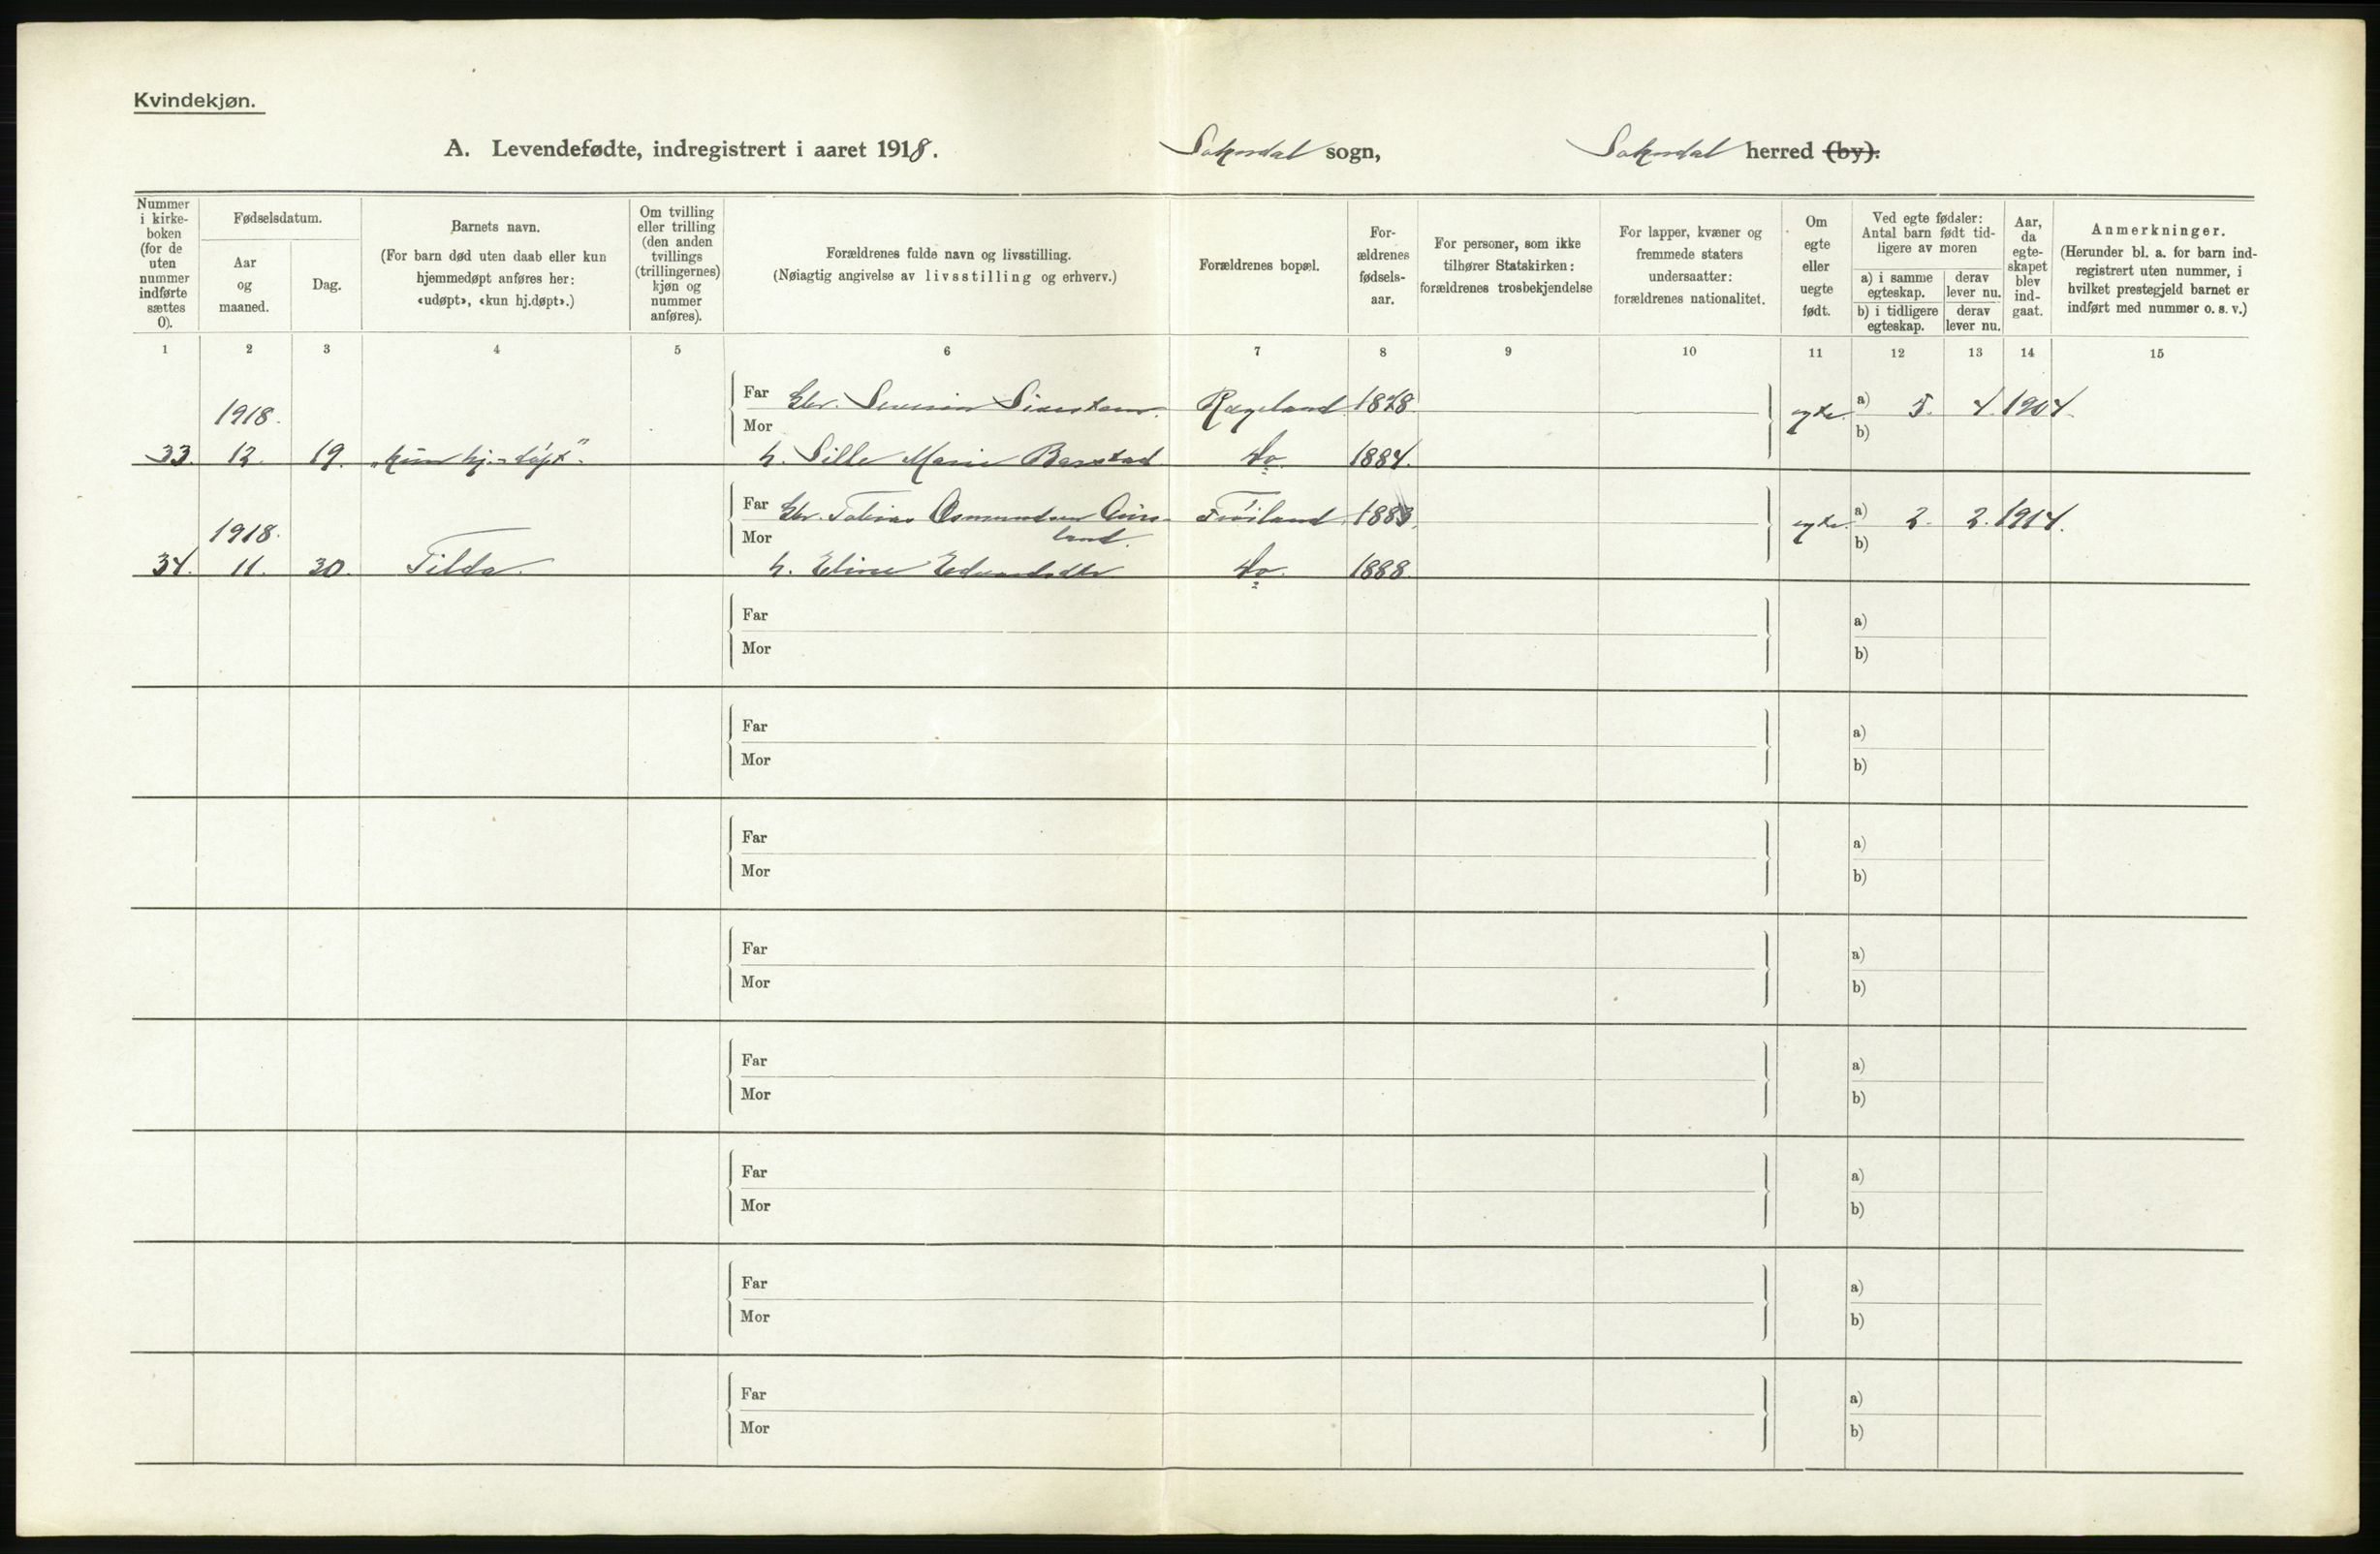 Kvindekjøn.
A. Levendefødte, indregistrert i aaret 1918. Sokndal sogn, Sokndal herred (by).
Nummer i kirkeboken (for de uten nummer indførte sættes 0).
Fødselsdatum.
Aar og maaned.
Dag.
Barnets navn.
(For barn død uten daab eller kun hjemmedøpt anføres her: «udøpt», «kun hj.døpt».)
Om tvilling eller trilling (den anden tvillings (trillingernes) kjøn og nummer anføres).
Forældrenes fulde navn og livsstilling.
(Nøiagtig angivelse av livsstilling og erhverv.)
Forældrenes bopæl.
Forældrenes fødselsaar.
For personer, som ikke tilhører Statskirken: forældrenes trosbekjendelse
For lapper, kvæner og fremmede staters undersaatter: forældrenes nationalitet.
Om egte eller uegte født.
Ved egte fødsler: Antal barn født tidligere av moren
a) i samme egteskap.
derav lever nu.
b) i tidligere egteskap.
derav lever nu.
Aar, da egteskapet blev indgaat.
Anmerkninger.
(Herunder bl. a. for barn indregistrert uten nummer, i hvilket prestegjeld barnet er indført med nummer o. s. v.)
1 2 3 4 5 6 7 8 9 10 11 12 13 14 15
1918. Far Gbr. Severin Sivertsen Rægeland 1878. egte. a) 5. 4. 1904.
Mor b)
33. 12. 19. „kun hj.-døpt". h. Sille Marie Barstad do. 1884.
1918. Far Gbr. Tobias Osmundsen Frøiland 1883. egte. a) 2. 2. 1914.
Mor land. b)
34. 11. 30. Tilda. h. Eline Edvardsdtr. do. 1888.
Far a)
Mor b)
Far a)
Mor b)
Far a)
Mor b)
Far a)
Mor b)
Far a)
Mor b)
Far a)
Mor b)
Far a)
Mor b)
Far a)
Mor b)